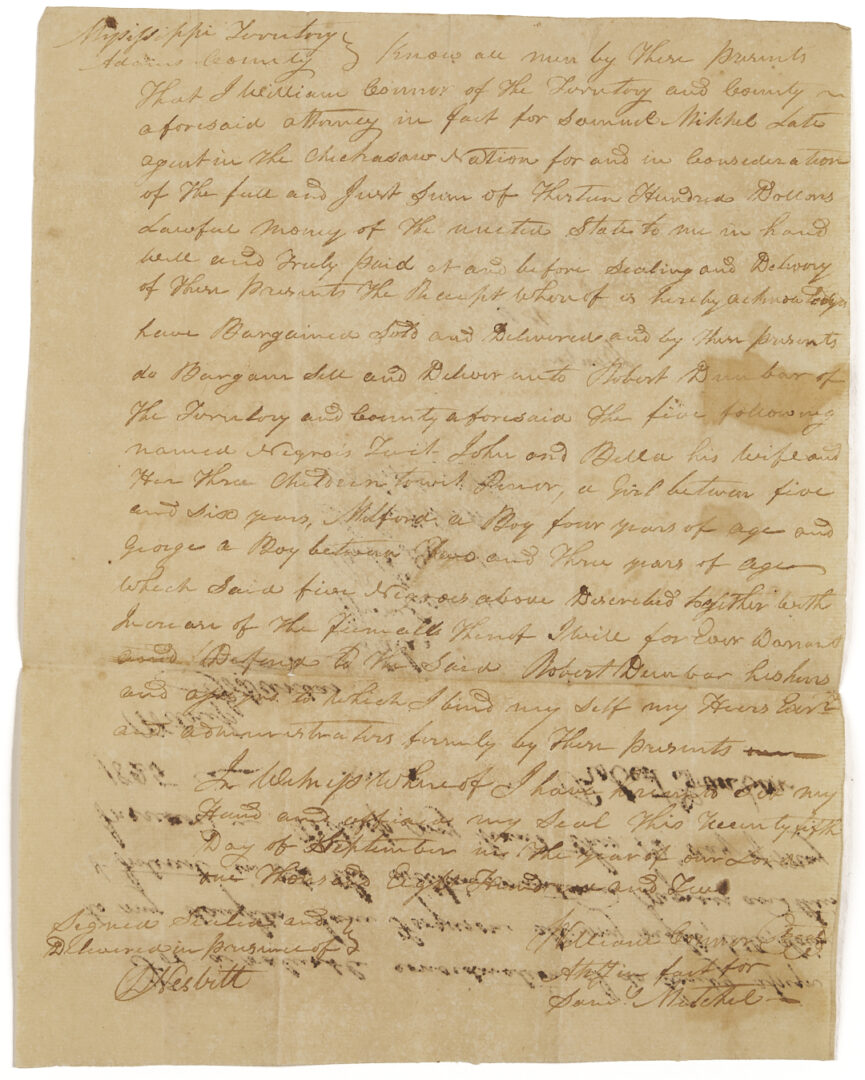 Missisippi Territory }
Adams County } Know all men by These Presents
That I William Connor of the Territory and County
aforesaid attorney in fact for Samuel Mitchel Late
agent in The Chickasaw Nation for and in Consideration
of The full and Just Sum of Thirteen Hundred Dollars
Lawful money of The united State to me in hand
well and Truly paid at and before Sealing and Delivery
of These Presents The Receipt Whereof is hereby acknowledged
have Bargained Sold and Delivered and by These presents
do Bargain Sell and Deliver unto Robert Dunbar of
The Territory and County aforesaid The five following
named Negrois Twit John and Bella his Wife and
Her Three Children towit a Girl between five
and Six years, Milford a Boy four years of age and
George a Boy between Two and Three years of age
Which Said five Negroes above Discribed together With
Increase of The femalls Thereof I will for Ever Warrant
and Defend to The Said Robert Dunbar his heirs
and assigns to Which I bind my Self my Heirs Exers
and administrators firmly by These presents
In Witness Where of I have hereunto Set my
Hand and affixed my Seal This Twenty fifth
Day of September in The year of our Lord
one Thousand Eight Hundred and Two
Signed Sealed and }
Delivered in presence of }
Nesbitt
William Connor Seal
Atty in fact for
Saml Mitchel